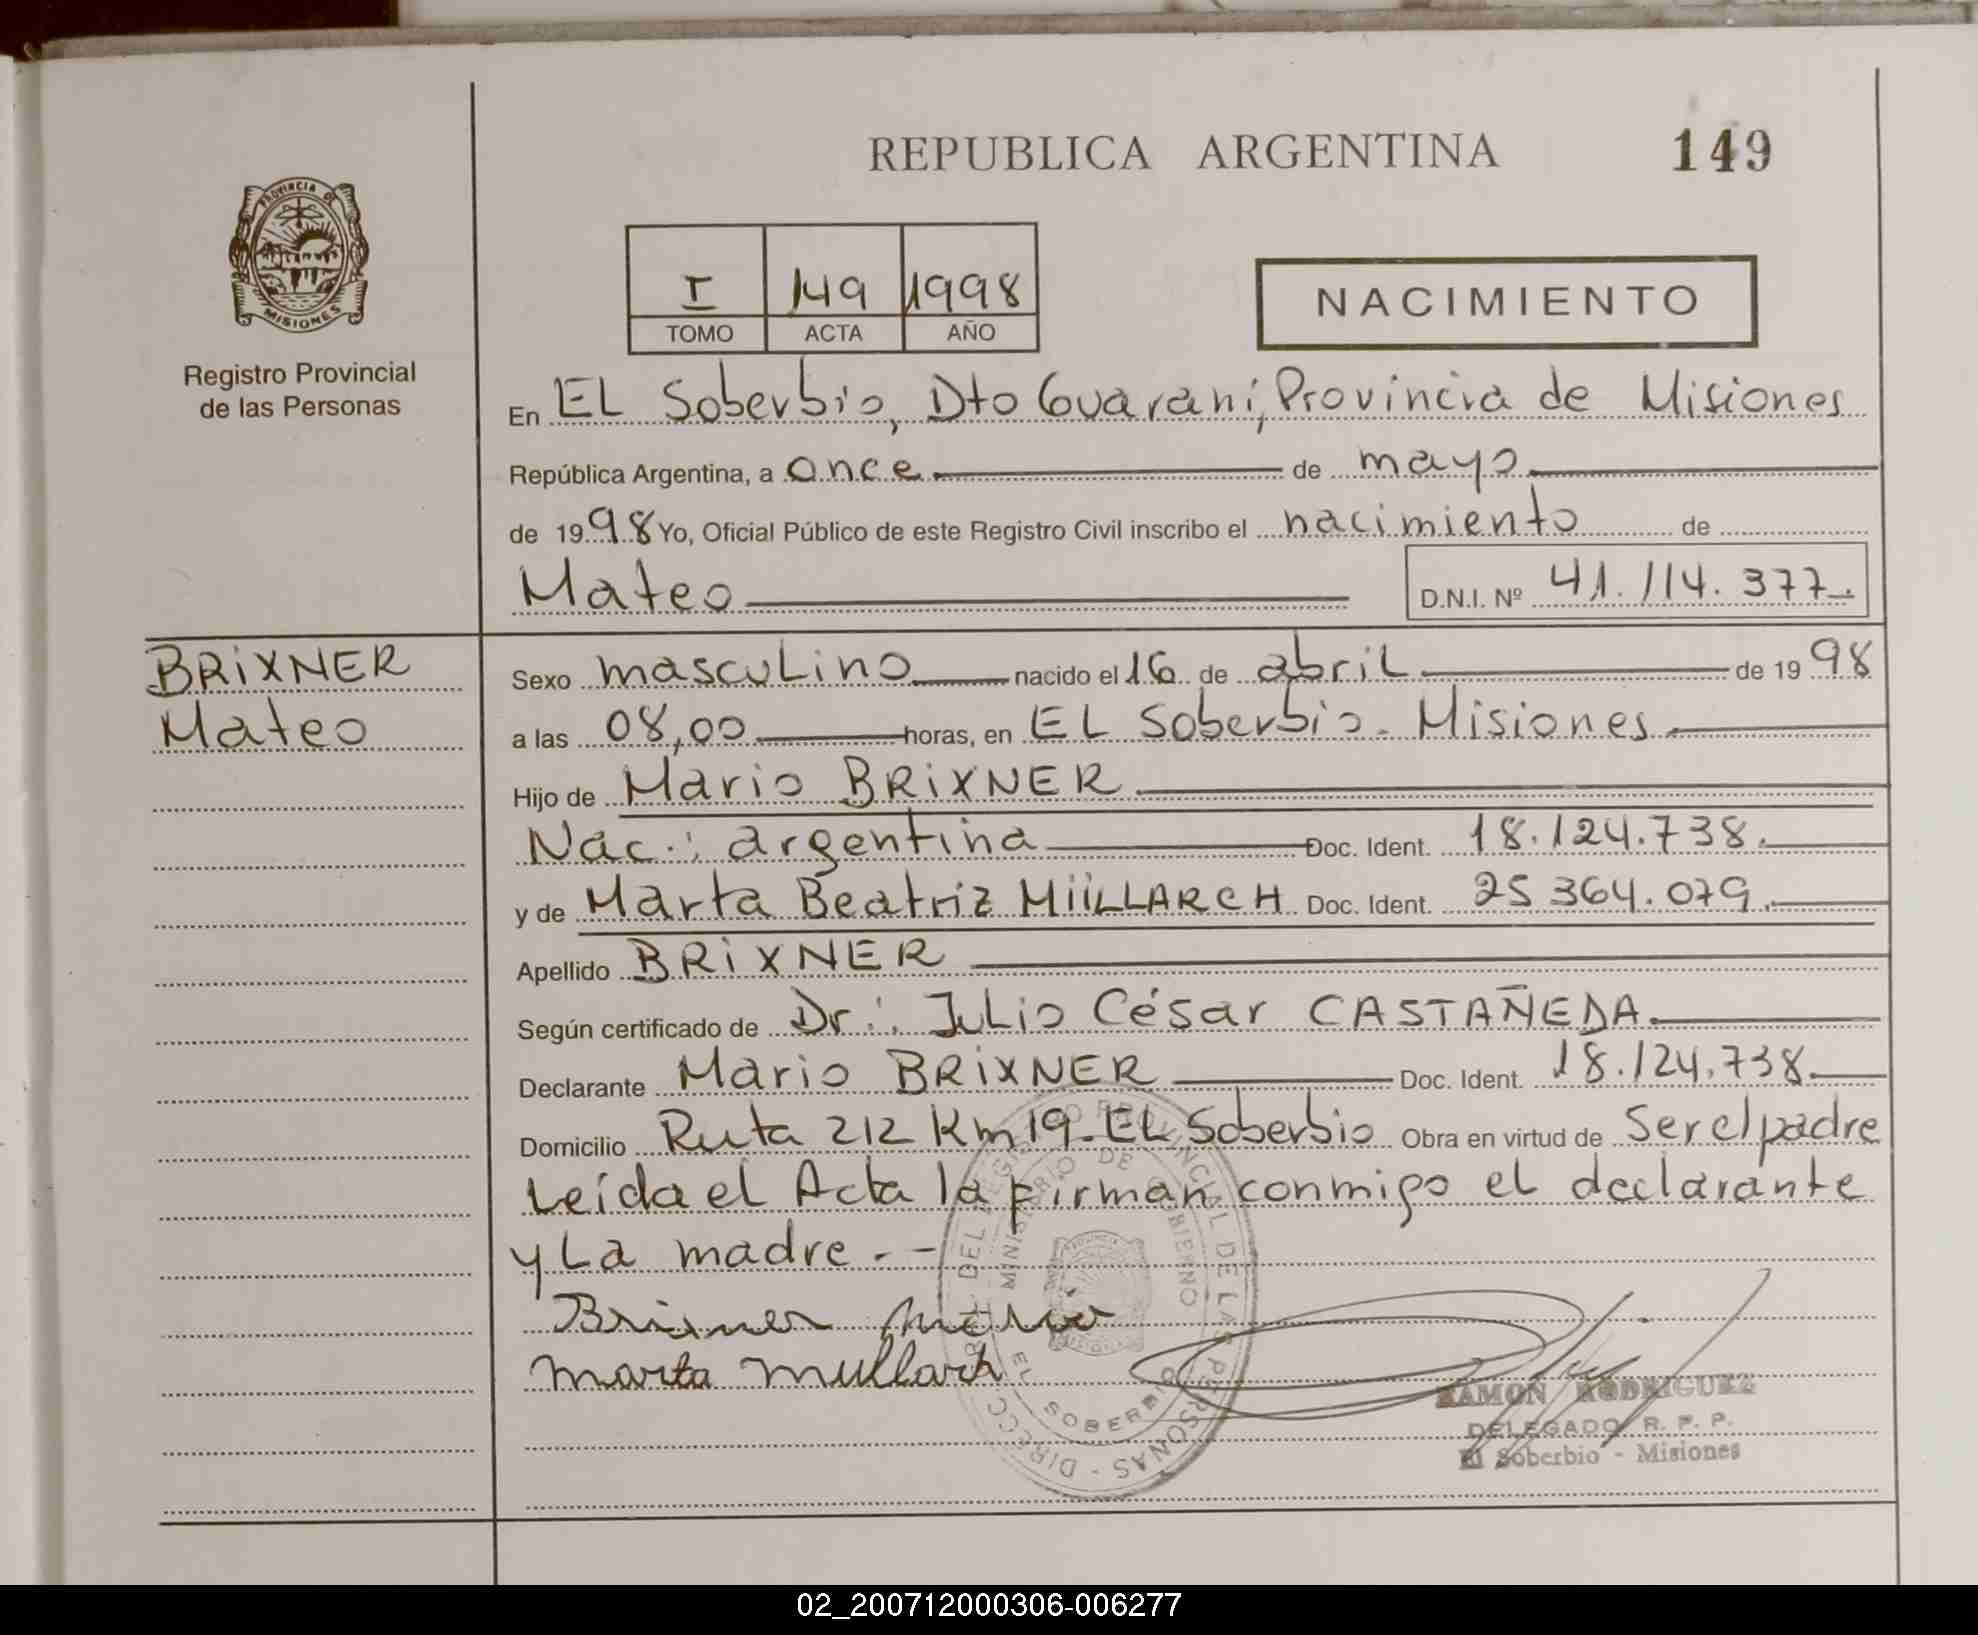 REPUBLICA ARGENTINA
149
PROVINCIA DE
MISIONES
Registro Provincial
de las Personas
I 149 1998
TOMO ACTA AÑO
NACIMIENTO
En EL Soberbio, Dto Guaraní, Provincia de Misiones
República Argentina, a once de mayo
de 1998 Yo, Oficial Público de este Registro Civil inscribo el nacimiento de
Mateo
D.N.I. Nº 41.114.377.
BRiXNER
Mateo
Sexo mascuLino nacido el 16 de abriL de 1998
a las 08,00 horas, en EL Soberbio - Misiones
Hijo de Mario BRiXNER
Nac.: argentina Doc. Ident. 18.124.738.
y de Marta Beatriz MüLLARCH Doc. Ident. 25 364.079.
Apellido BRiXNER
Según certificado de Dr.: JuLio César CASTAÑEDA.
Declarante Mario BRiXNER Doc. Ident. 18.124.738.
Domicilio Ruta 212 Km 19 - EL Soberbio Obra en virtud de Ser el padre
Leída el Acta la firman conmigo el declarante
y La madre. -
Brixner Mario
Marta Mullarch
DIRECC. GRAL. DEL REGISTRO PROVINCIAL DE LAS PERSONAS -
MINISTERIO DE GOBIERNO
EL SOBERBIO
RAMON RODRIGUEZ
DELEGADO R. P. P.
El Soberbio - Misiones
02_200712000306-006277